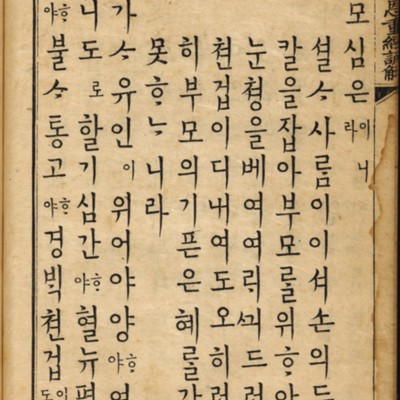 重經諺解
모심은아니라
셜ᄉᆞ사ᄅᆞᆷ이이셔손의드
칼을잡아부모ᄅᆞᆯ위ᄒᆞ야
눈쳥을베여여ᄅᆡᄭᅴ드려
쳔겁이디내여도오히려
히부모의기픈은혜ᄅᆞᆯ갑
못ᄒᆞᄂᆞ니라
가ᄉᆞ유인이위어야양ᄒᆞ야여
니도로할기심간ᄒᆞ야혈뉴편
ᄒᆞ야불ᄉᆞ통고ᄒᆞ야경ᄇᆡᆨ쳔겁